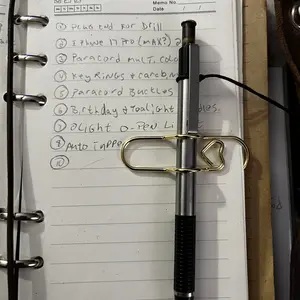 Memo No.
Date / /
① Plug end for Drill
② I Phone 17 Pro (max?)
③ Paracord mult. colo
④ Key Rings & carabine
⑤ Paracord Buckles
⑥ Birthday & Toolight
⑦ Olight O-Pen
⑧ Auto
⑩